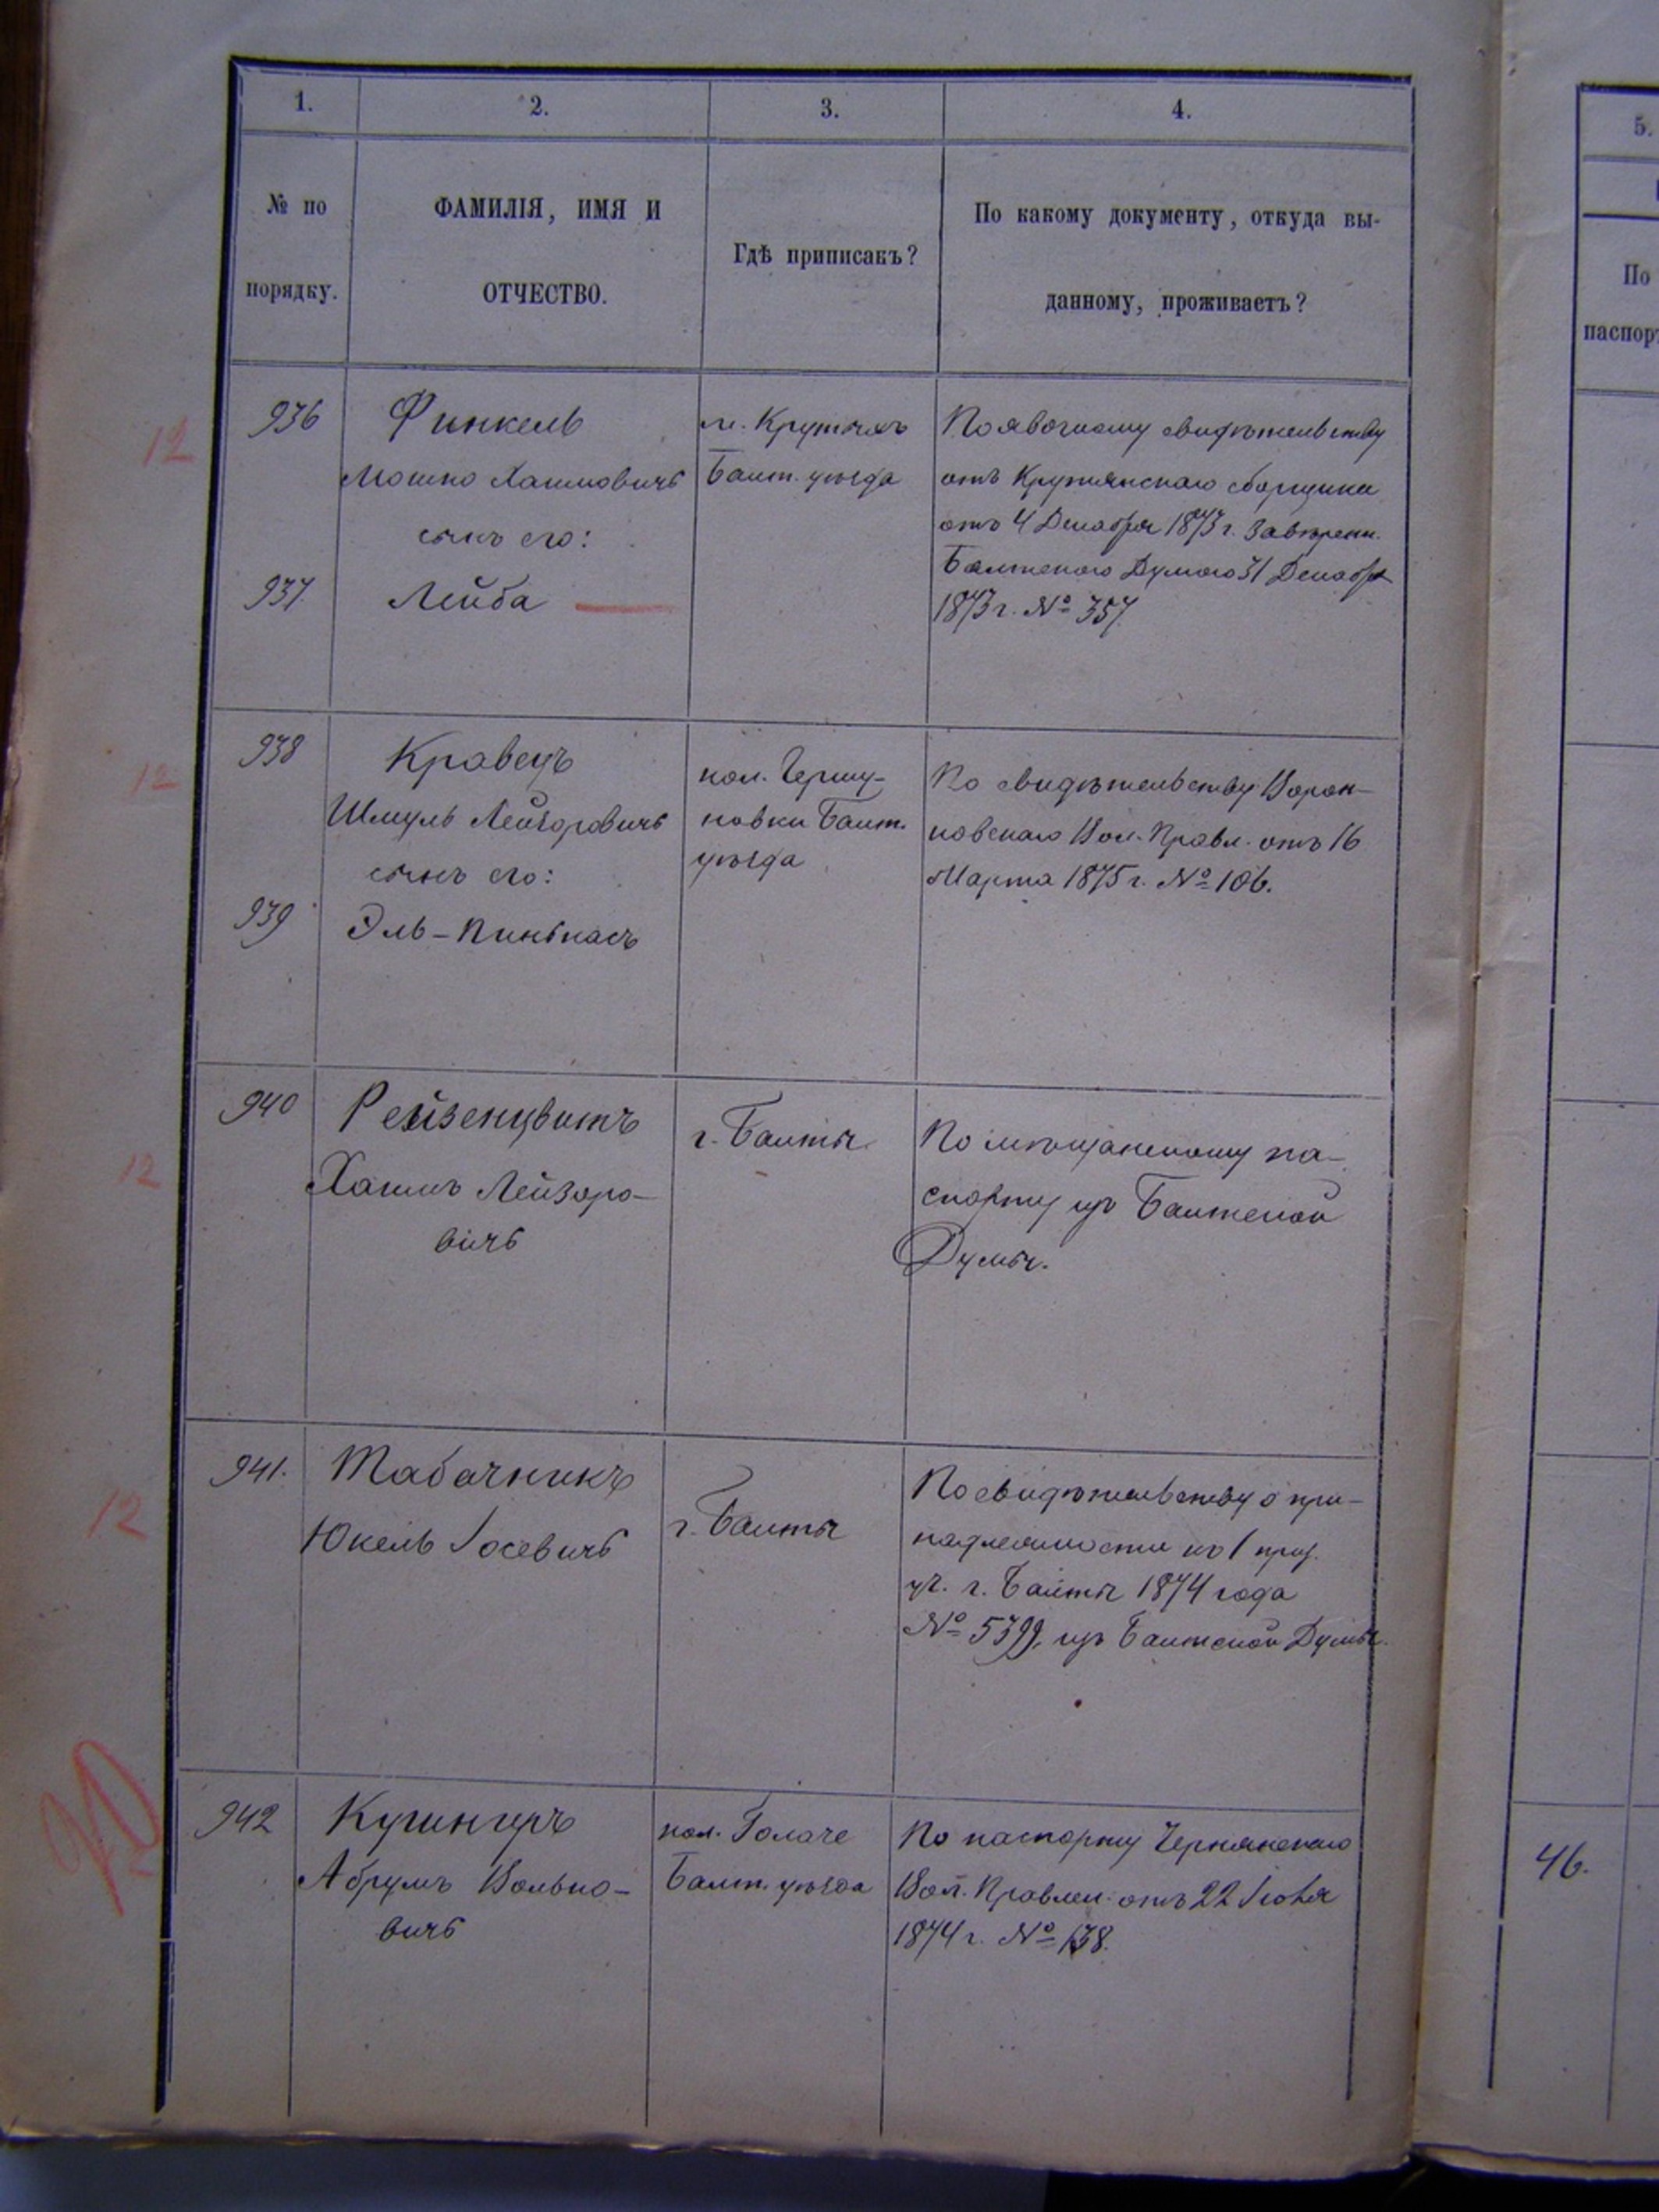 1.
2.
3.
4.
5.
№ по
порядку.
ФАМИЛІЯ, ИМЯ И
ОТЧЕСТВО.
Гдѣ приписанъ?
По какому документу, откуда вы-
данному, проживаетъ?
По
паспорт
12
936
Финкель
Мошко Хаимовичъ
сынъ его:
937.
Лейба
м. Крутыхъ
Балт. уѣзда
По явочному свидѣтельству
отъ Крутянскаго сборщика
отъ 4 Декабря 1873 г. Завѣрен.
Балтскою Думою 31 Декабря
1873 г. № 357.
12
938
Кравецъ
Шмуль Лейзоровичъ
сынъ его:
939
Эль-Пинькасъ
кол. Гершу-
новки Балт.
уѣзда
По свидѣтельству Ворон-
ковскаго Вол. Правл. отъ 16
Марта 1875 г. № 106.
12
940
Рейзенцвитъ
Хаимъ Лейзоро-
вичъ
г. Балты
По мѣщанскому па-
спорту изъ Балтской
Думы.
12
941.
Табачникъ
Юкель Іосевичъ
г. Балты
По свидѣтельству о при-
надлежности къ 1 приз.
уч. г. Балты 1874 года
№ 5399, изъ Балтской Думы.
942
Абрумъ Волько-
вичъ
кол. Голаче
Балт. уѣзда
По паспорту Чернянскаго
Вол. Правлен. отъ 22
1874 г. № 138.
46.